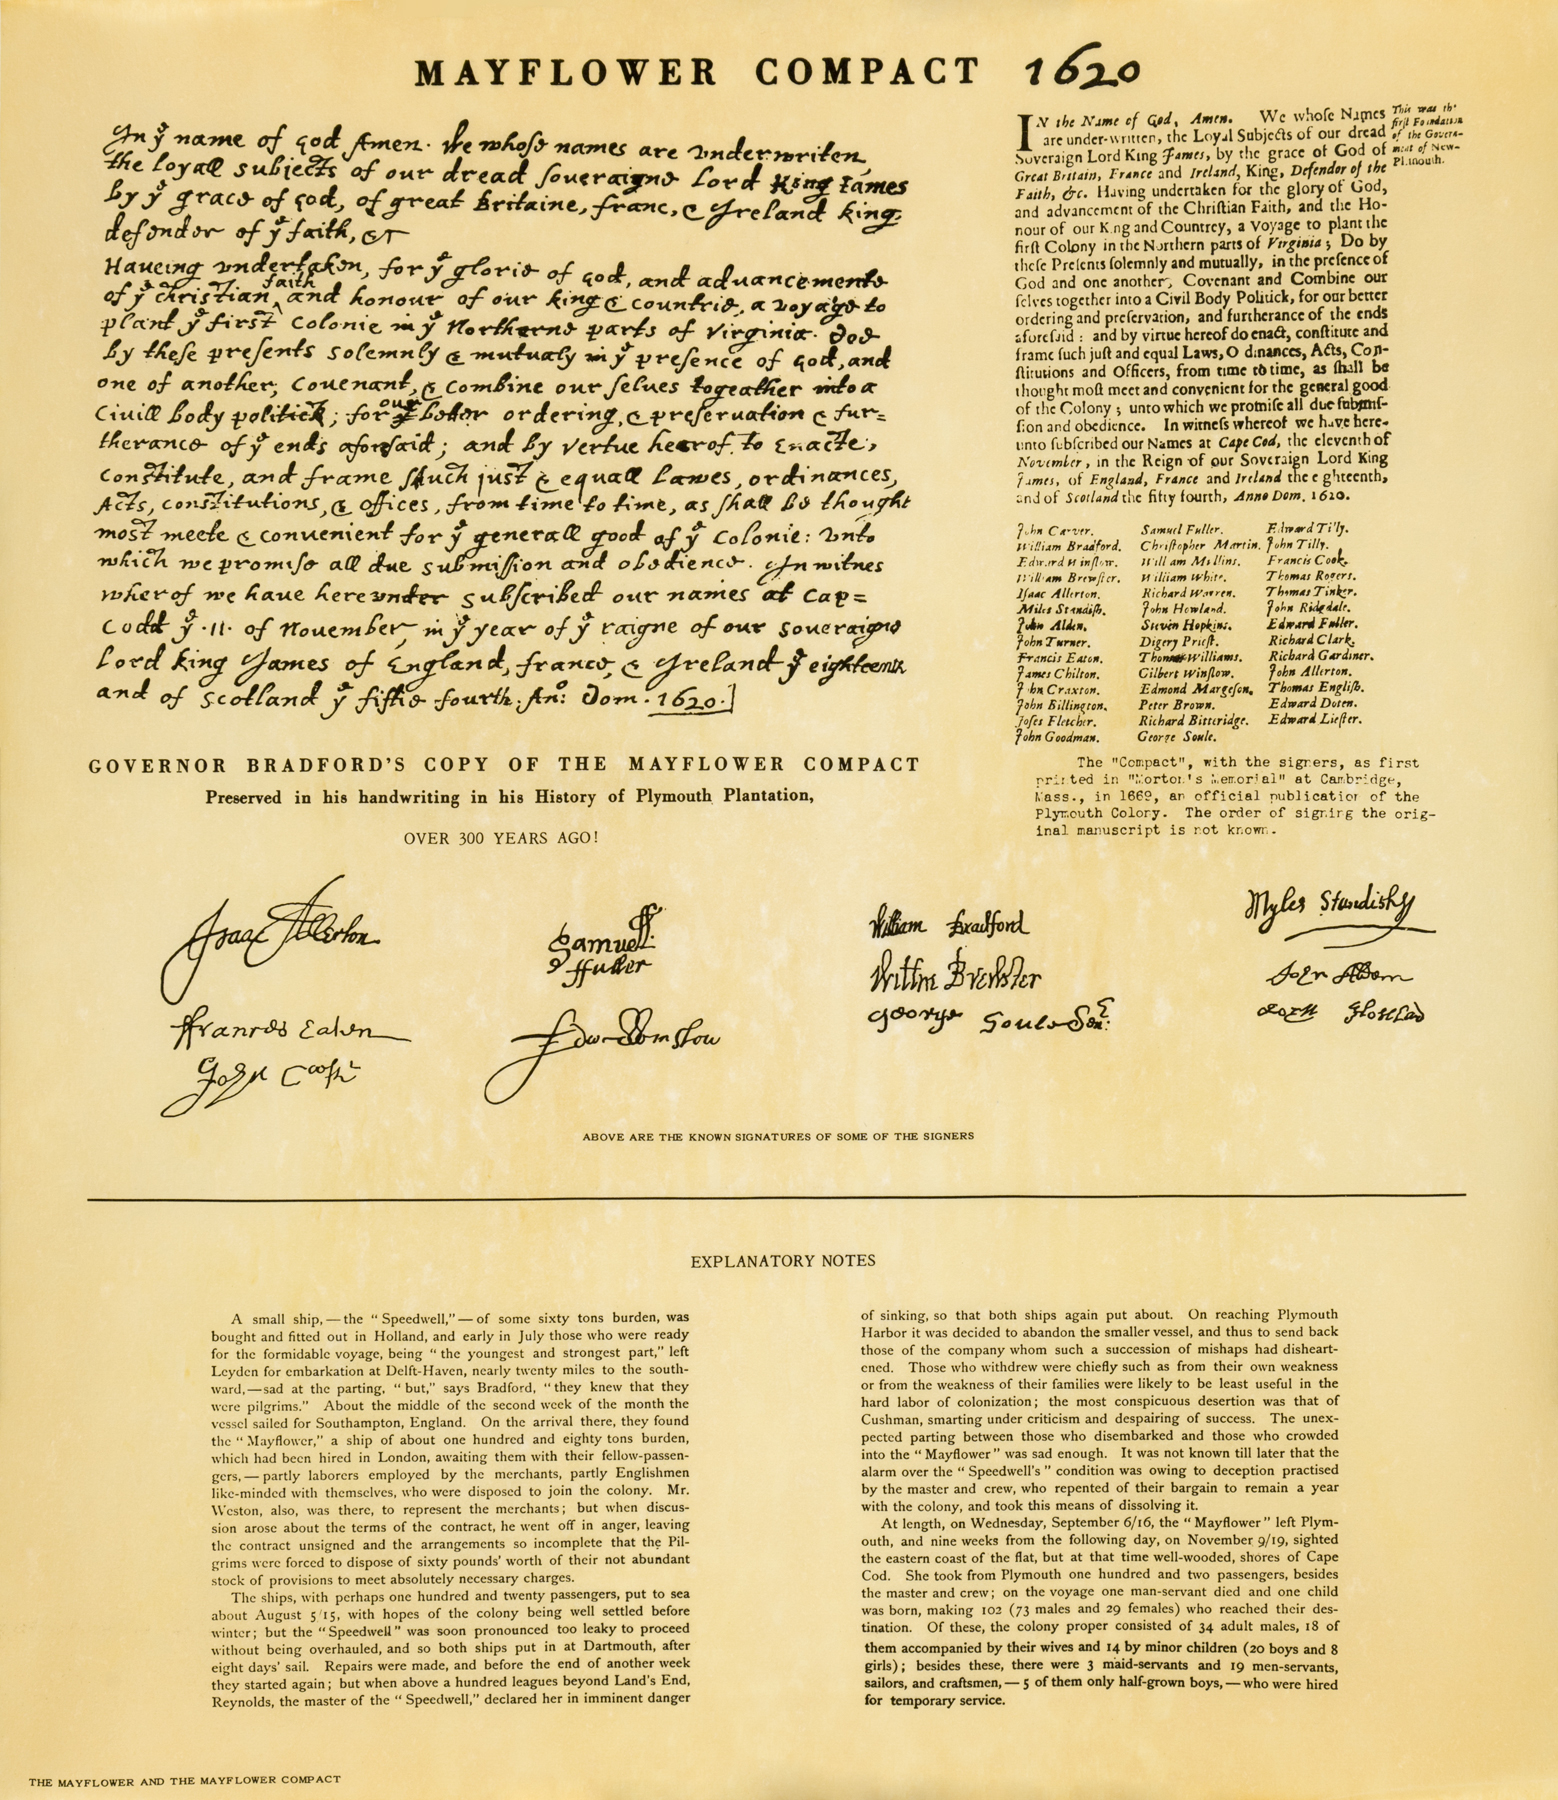 MAYFLOWER COMPACT 1620
In yᵉ name of god Amen. We whose names are vnderwriten,
the loyall subjects of our dread soueraigne Lord King Iames
by yᵉ grace of god, of great Britaine, franc, & Ireland king,
defender of yᵉ faith, &c
Haueing vndertaken, for yᵉ glorie of god, and aduancemente
of yᵉ christian ^faith and honour of our king & countrie, a voyage to
plant yᵉ first colonie in yᵉ Northerne parts of Virginia. Doe
by these presents solemnly & mutualy in yᵉ presence of god, and
one of another; couenant, & combine our selues togeather into a
Ciuill body politick; for our better ordering, & preseruation & fur=
therance of yᵉ ends aforesaid; and by vertue hearof to Enacte,
constitute, and frame such just & equall Lawes, ordinances,
Acts, constitutions, & offices, from time to time, as shall be thought
most meete & conuenient for yᵉ generall good of yᵉ colonie: vnto
which we promise all due submission and obedience. In witnes
wherof we haue herevnder subscribed our names at Cap=
Codd yᵉ ·11· of Nouember, in yᵉ year of yᵉ raigne of our soueraigne
Lord king James of England, france, & Ireland yᵉ eighteenth
and of scotland yᵉ fiftie fourth. Anº: Dom. 1620.]
GOVERNOR BRADFORD'S COPY OF THE MAYFLOWER COMPACT
Preserved in his handwriting in his History of Plymouth Plantation,
OVER 300 YEARS AGO!
IN the Name of God, Amen. We whoſe Names
are under-written, the Loyal Subjects of our dread
Soveraign Lord King James, by the grace of God of
Great Britain, France and Ireland, King, Defendor of the
Faith, &c. Having undertaken for the glory of God,
and advancement of the Chriſtian Faith, and the Ho-
nour of our King and Countrey, a Voyage to plant the
firſt Colony in the Northern parts of Virginia; Do by
theſe Preſents ſolemnly and mutually, in the preſence of
God and one another, Covenant and Combine our
ſelves together into a Civil Body Politick, for our better
ordering and preſervation, and furtherance of the ends
aforeſaid: and by virtue hereof do enact, conſtitute and
frame ſuch juſt and equal Laws, Ordinances, Acts, Con-
ſtitutions and Officers, from time to time, as ſhall be
thought moſt meet and convenient for the general good
of the Colony; unto which we promiſe all due ſubmiſ-
ſion and obedience. In witneſs whereof we have here-
unto ſubſcribed our Names at Cape Cod, the eleventh of
November, in the Reign of our Soveraign Lord King
James, of England, France and Ireland the eighteenth,
and of Scotland the fifty fourth, Anno Dom. 1620.
This was the
firſt Foundation
of the Govern-
ment of New-
Plimouth.
John Carver. Samuel Fuller. Edward Tilly.
William Bradford. Chriſtopher Martin. John Tilly.
Edward Winſlow. William Mullins. Francis Cook.
William Brewſter. William White. Thomas Rogers.
Iſaac Allerton. Richard Warren. Thomas Tinker.
Miles Standiſh. John Howland. John Ridgdale.
John Alden. Steven Hopkins. Edward Fuller.
John Turner. Digery Prieſt. Richard Clark.
Francis Eaton. Thomas Williams. Richard Gardiner.
James Chilton. Gilbert Winſlow. John Allerton.
John Craxton. Edmond Margeſon. Thomas Engliſh.
John Billington. Peter Brown. Edward Doten.
Joſes Fletcher. Richard Bitteridge. Edward Lieſter.
John Goodman. George Soule.
The "Compact", with the signers, as first
printed in "Morton's Memorial" at Cambridge,
Mass., in 1669, an official publication of the
Plymouth Colony. The order of signing the orig-
inal manuscript is not known.
Isaac Allerton
Samuell
ffuller
William Bradford
Myles Standish
Willm Brewster
John Alden
Frances Eaton
Edw Winslow
George Soule Sen:
John Howland
John Cooke
ABOVE ARE THE KNOWN SIGNATURES OF SOME OF THE SIGNERS
EXPLANATORY NOTES
A small ship,—the "Speedwell,"—of some sixty tons burden, was
bought and fitted out in Holland, and early in July those who were ready
for the formidable voyage, being "the youngest and strongest part," left
Leyden for embarkation at Delft-Haven, nearly twenty miles to the south-
ward,—sad at the parting, "but," says Bradford, "they knew that they
were pilgrims." About the middle of the second week of the month the
vessel sailed for Southampton, England. On the arrival there, they found
the "Mayflower," a ship of about one hundred and eighty tons burden,
which had been hired in London, awaiting them with their fellow-passen-
gers,—partly laborers employed by the merchants, partly Englishmen
like-minded with themselves, who were disposed to join the colony. Mr.
Weston, also, was there, to represent the merchants; but when discus-
sion arose about the terms of the contract, he went off in anger, leaving
the contract unsigned and the arrangements so incomplete that the Pil-
grims were forced to dispose of sixty pounds' worth of their not abundant
stock of provisions to meet absolutely necessary charges.
The ships, with perhaps one hundred and twenty passengers, put to sea
about August 5/15, with hopes of the colony being well settled before
winter; but the "Speedwell" was soon pronounced too leaky to proceed
without being overhauled, and so both ships put in at Dartmouth, after
eight days' sail. Repairs were made, and before the end of another week
they started again; but when above a hundred leagues beyond Land's End,
Reynolds, the master of the "Speedwell," declared her in imminent danger
of sinking, so that both ships again put about. On reaching Plymouth
Harbor it was decided to abandon the smaller vessel, and thus to send back
those of the company whom such a succession of mishaps had disheart-
ened. Those who withdrew were chiefly such as from their own weakness
or from the weakness of their families were likely to be least useful in the
hard labor of colonization; the most conspicuous desertion was that of
Cushman, smarting under criticism and despairing of success. The unex-
pected parting between those who disembarked and those who crowded
into the "Mayflower" was sad enough. It was not known till later that the
alarm over the "Speedwell's" condition was owing to deception practised
by the master and crew, who repented of their bargain to remain a year
with the colony, and took this means of dissolving it.
At length, on Wednesday, September 6/16, the "Mayflower" left Plym-
outh, and nine weeks from the following day, on November 9/19, sighted
the eastern coast of the flat, but at that time well-wooded, shores of Cape
Cod. She took from Plymouth one hundred and two passengers, besides
the master and crew; on the voyage one man-servant died and one child
was born, making 102 (73 males and 29 females) who reached their des-
tination. Of these, the colony proper consisted of 34 adult males, 18 of
them accompanied by their wives and 14 by minor children (20 boys and 8
girls); besides these, there were 3 maid-servants and 19 men-servants,
sailors, and craftsmen,—5 of them only half-grown boys,—who were hired
for temporary service.
THE MAYFLOWER AND THE MAYFLOWER COMPACT